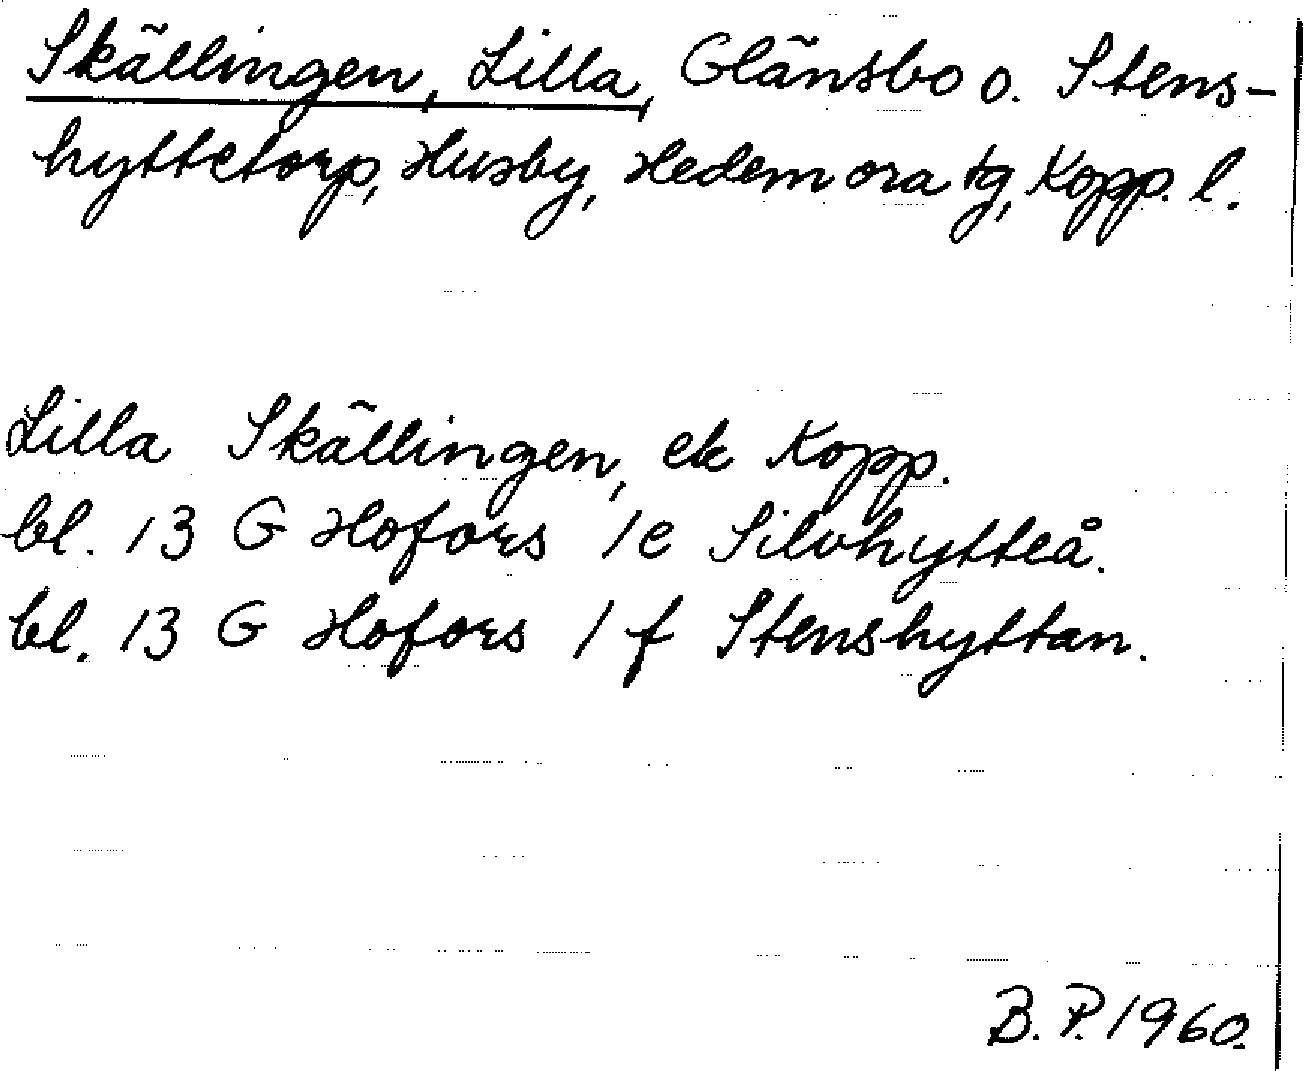 Skällingen, Lilla, Glänsbo o. Stens-
hyttetorp, Husby, Hedemora tg, Kopp. l.
Lilla Skällingen, ek Kopp.
bl. 13 G Hofors 1e Silvhytteå.
bl. 13 G Hofors 1 f Stenshyttan.
B. P. 1960.